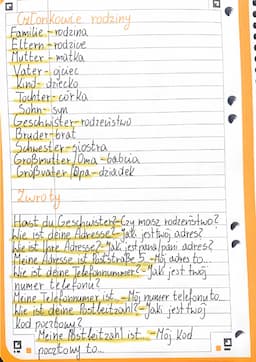 Członkowie rodziny
Familie - rodzina
Eltern - rodzice
Mutter - matka
Vater - ojciec
Kind - dziecko
Tochter - córka
Sohn - syn
Geschwister - rodzeństwo
Bruder - brat
Schwester - siostra
Großmutter/Oma - babcia
Großvater/Opa - dziadek
Zwroty
Hast du Geschwister? - Czy masz rodzeństwo?
Wie ist deine Adresse? - Jak jest twój adres?
Wie ist Ihre Adresse? - Jak jest pana/pani adres?
Meine Adresse ist Poststraße 5 - Mój adres to...
Wie ist deine Telefonnummer? - Jaki jest twój
numer telefonu?
Meine Telefonnumer ist... - Mój numer telefonu to...
Wie ist deine Postleitzahl? - Jaki jest twój
kod pocztowy?
Meine Postleitzahl ist... - Mój kod
pocztowy to...